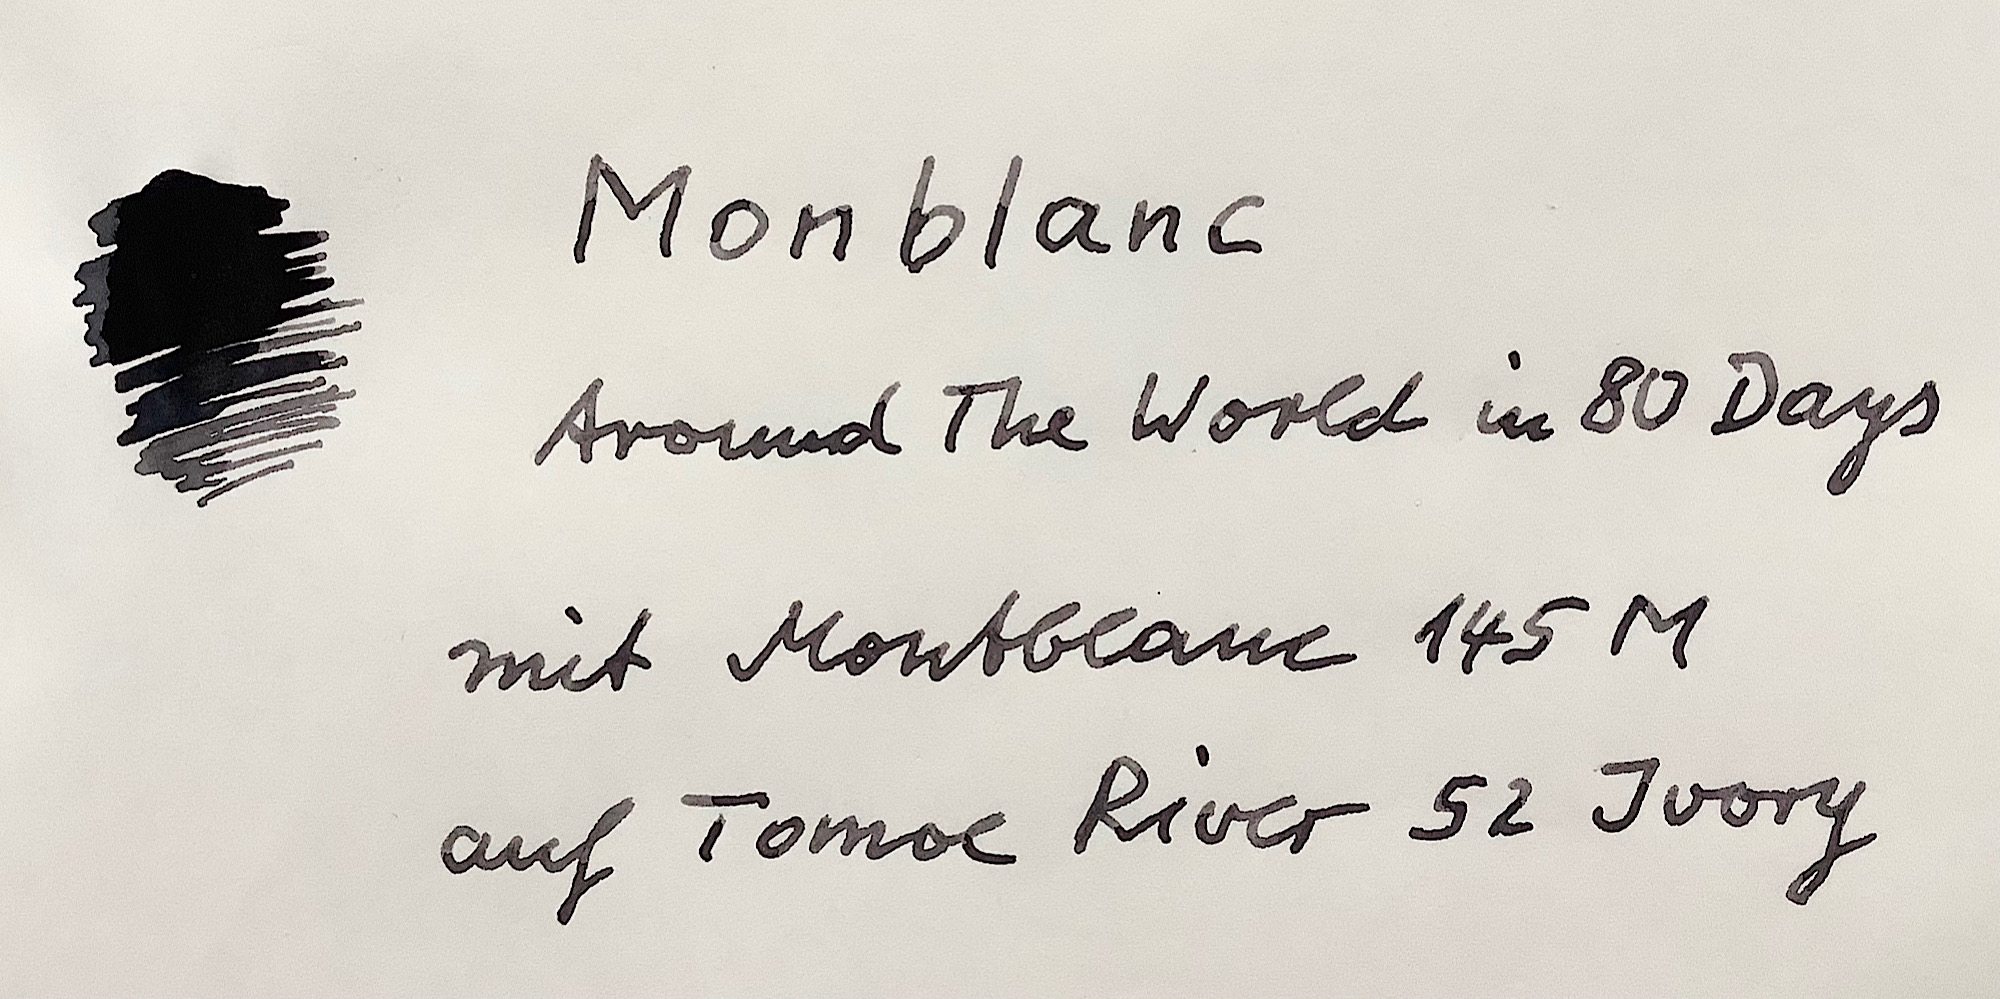 Monblanc
Around The World in 80 Days
mit Montblanc 145 M
auf Tomoe River 52 Ivory